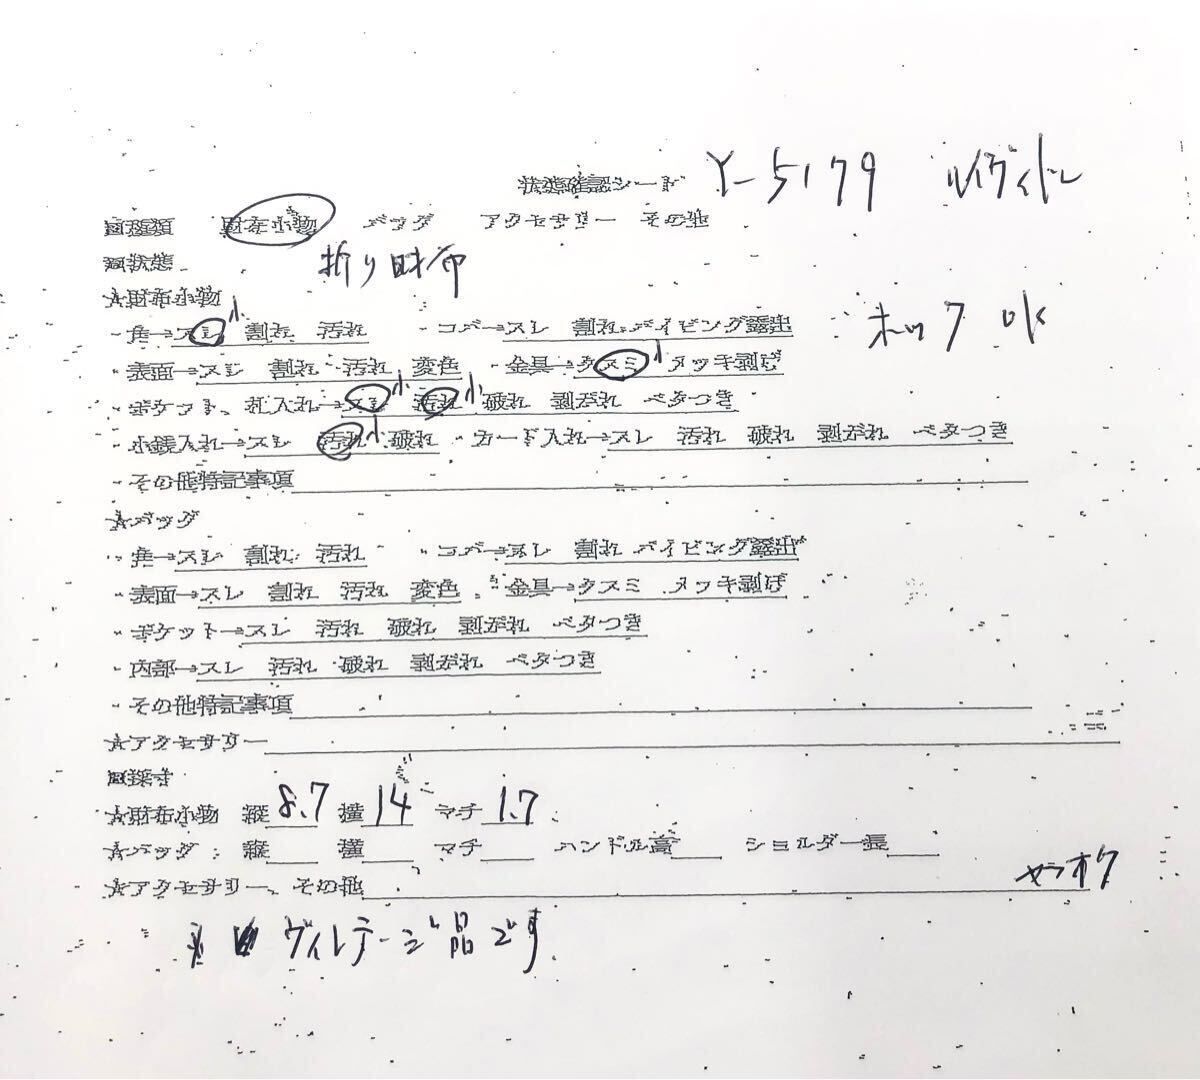 状態確認シート Y-5179 ルイヴィトン
□種類 財布小物 バッグ アクセサリー その他
□状態 折り財布
☆財布小物
・角→スレ小 割れ 汚れ ・コバ→スレ 割れ パイピング露出 ホック OK
・表面→スレ 割れ 汚れ 変色 ・金具→クスミ小 メッキ剥げ
・ポケット、札入れ→スレ小 汚れ小 破れ 剥がれ ベタつき
・小銭入れ→スレ 汚れ小 破れ ・カード入れ→スレ 汚れ 破れ 剥がれ ベタつき
・その他特記事項
☆バッグ
・角→スレ 割れ 汚れ ・コバ→スレ 割れ パイピング露出
・表面→スレ 割れ 汚れ 変色 ・金具→クスミ メッキ剥げ
・ポケット→スレ 汚れ 破れ 剥がれ ベタつき
・内部→スレ 汚れ 破れ 剥がれ ベタつき
・その他特記事項
☆アクセサリー
□採寸
☆財布小物 縦 8.7 横 14 マチ 1.7
☆バッグ 縦 横 マチ ハンドル高 ショルダー長
☆アクセサリー、その他 ヤフオク
ヴィンテージ品です